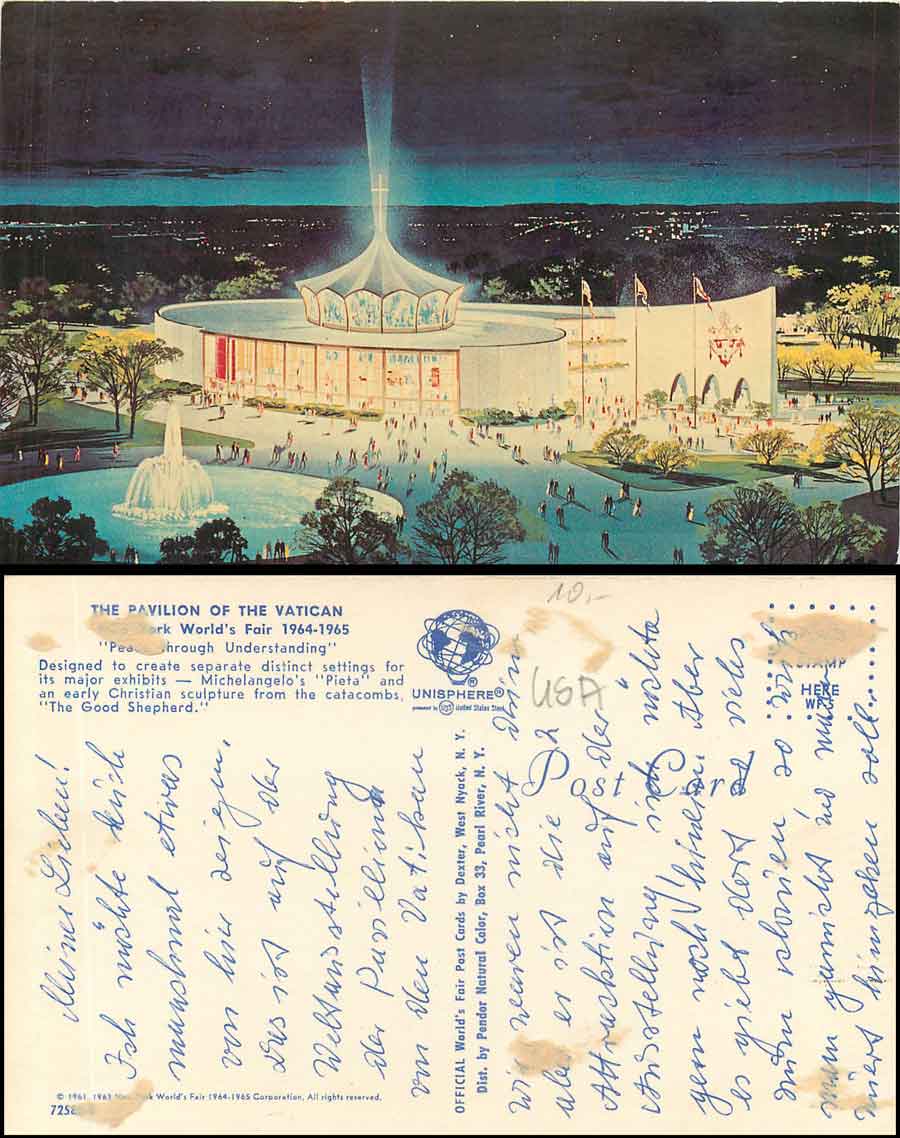 THE PAVILION OF THE VATICAN
rk World's Fair 1964-1965
"Pea hrough Understanding"
Designed to create separate distinct settings for
its major exhibits — Michelangelo's "Pieta" and
an early Christian sculpture from the catacombs,
"The Good Shepherd."
UNISPHERE®
powered by USS United States Steel
10,-
USA
STAMP
HERE
Post Card
Meine Lieben!
Ich möchte Euch
manchmal etwas
von hier zeigen.
Das ist auf der
Weltausstellung
der Pavillion
von dem Vatikan
OFFICIAL World's Fair Post Cards by Dexter, West Nyack, N. Y.
Dist. by Pendor Natural Color, Box 33, Pearl River, N. Y.
Wir waren nicht drin
aber es ist die 2
Attraktion auf der
Ausstellung ich möchte
gern noch hinein. Aber
es giebt dort so viels
zum schauen so dass
man garnicht weis man
hinzehen soll...
© 1961, 1963 New York World's Fair 1964-1965 Corporation, All rights reserved.
7258